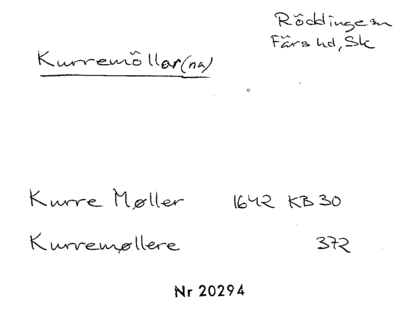 Röddinge sn
Färs hd, Sk
Kurremöllor(na)
Kurre Møller 1642 KB 30
Kurremøllere 372
Nr 20294